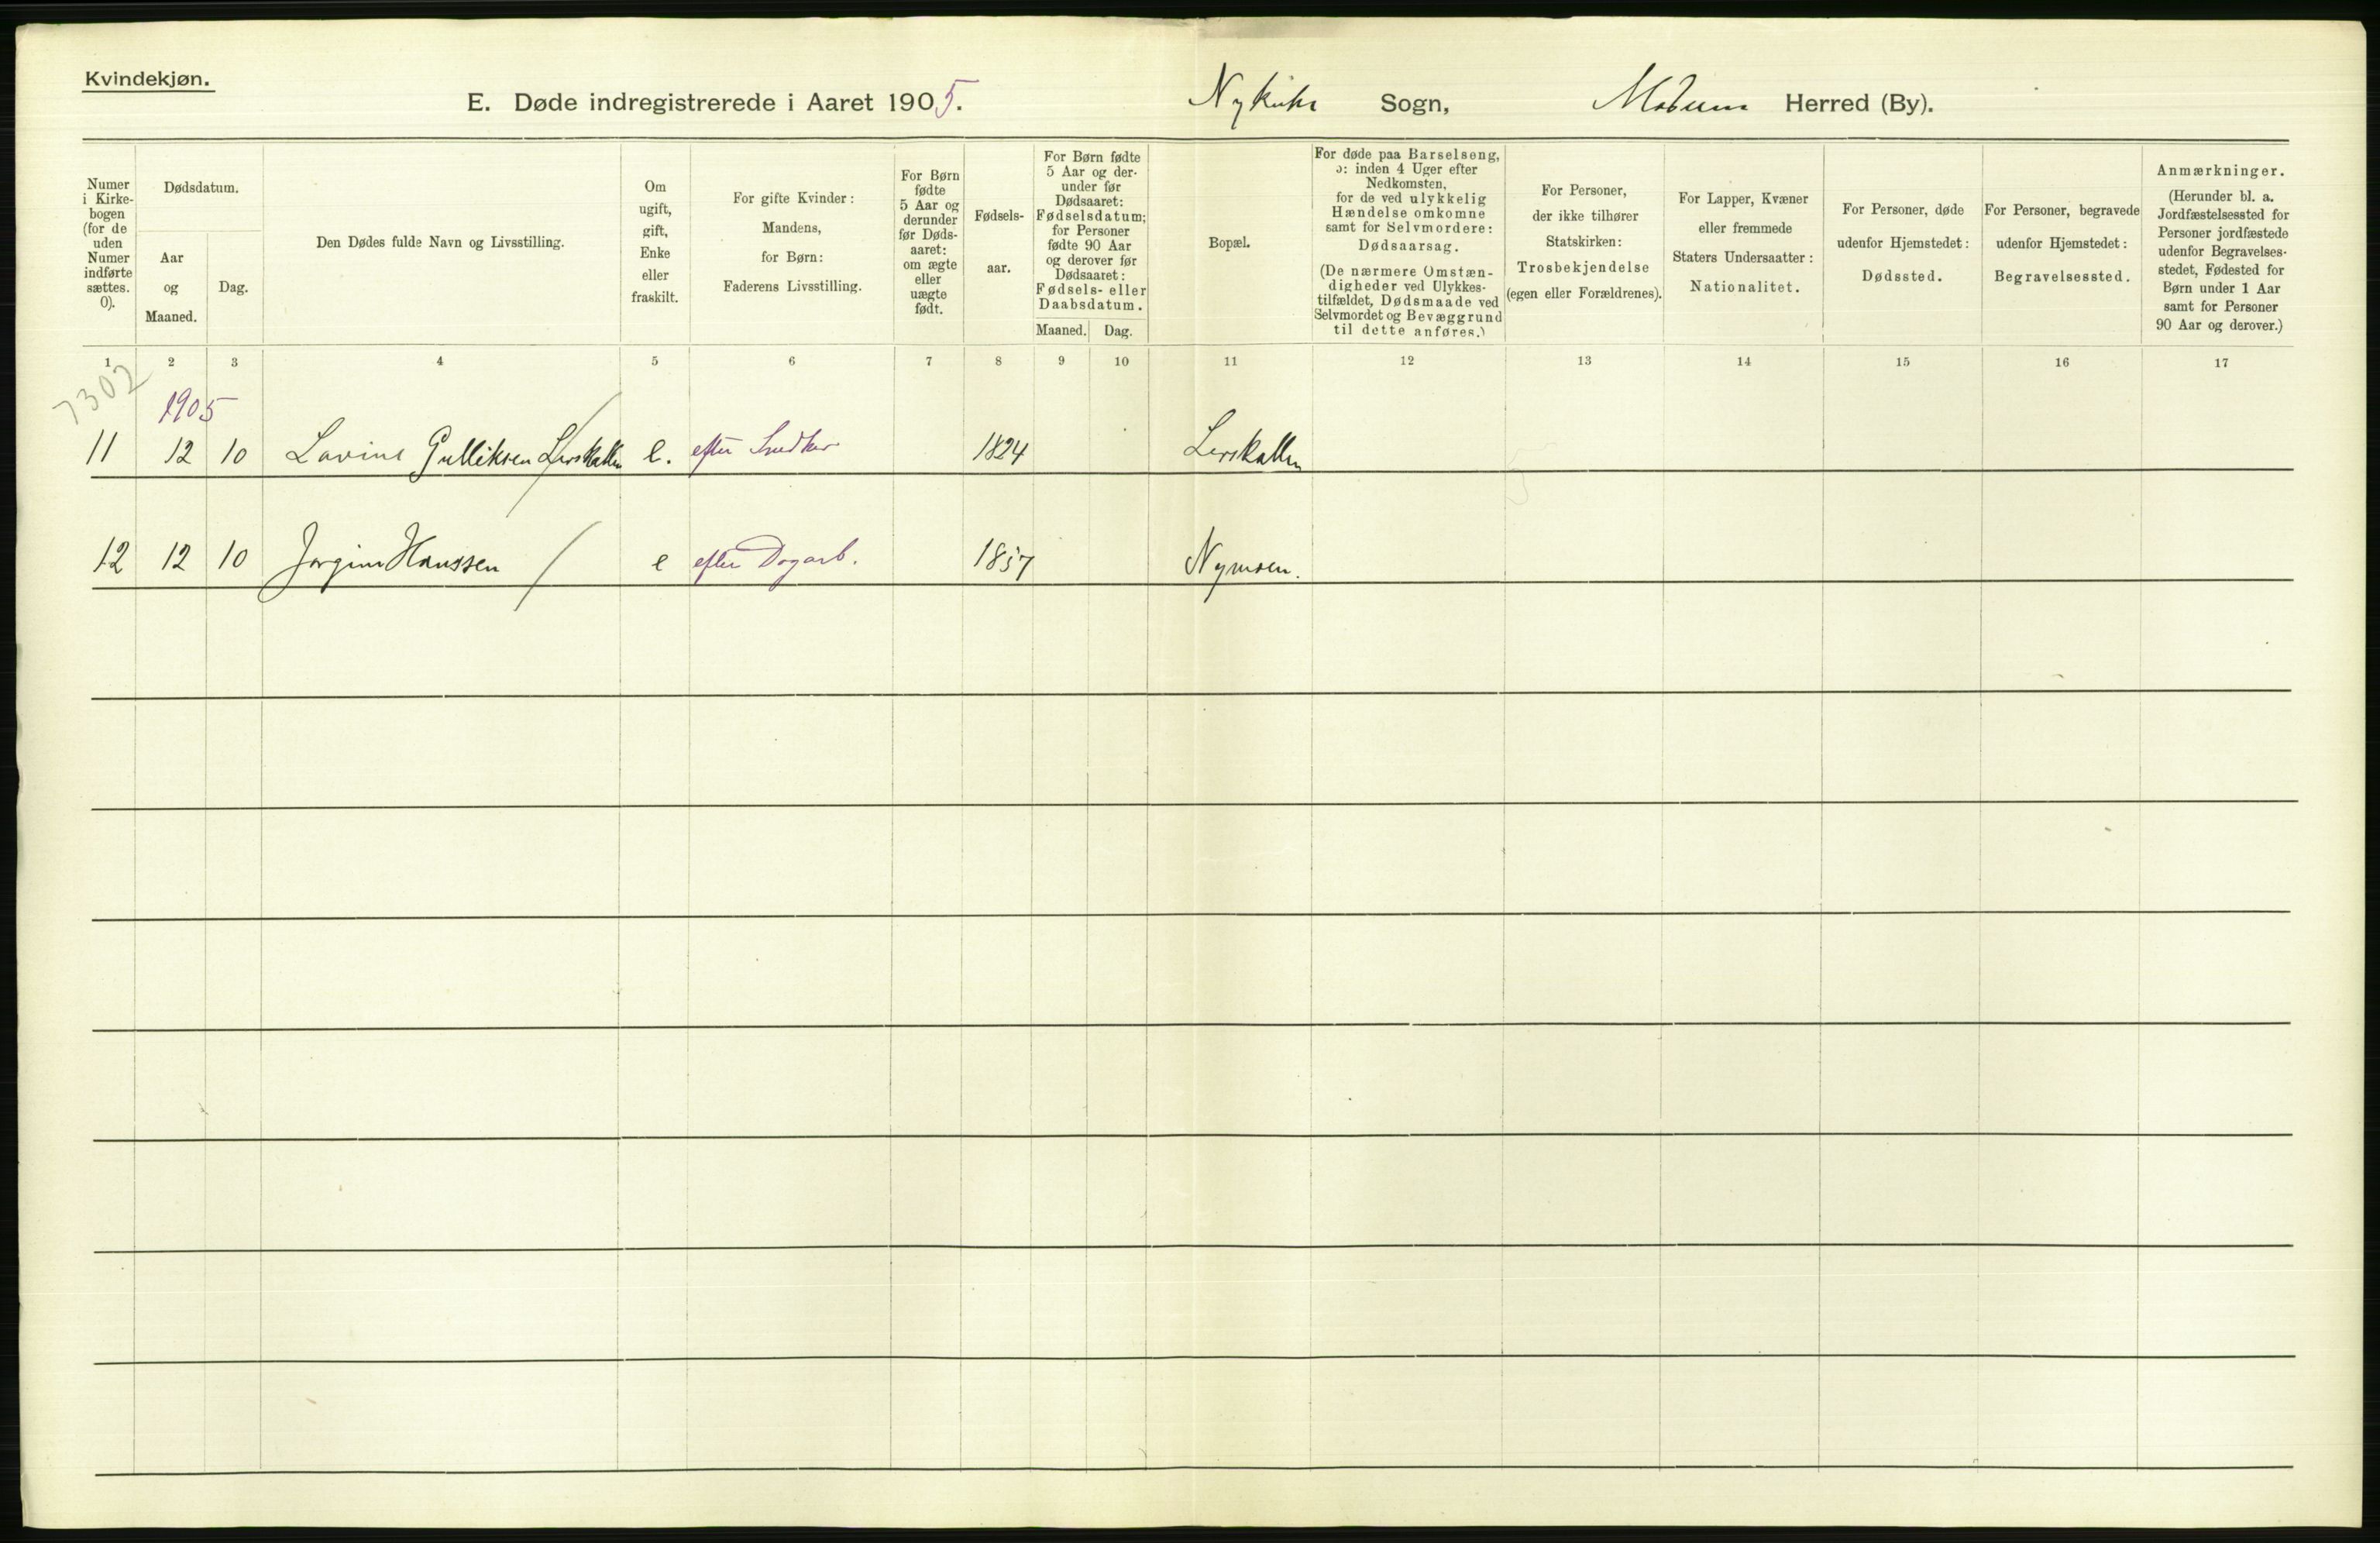 Kvindekjøn.
E. Døde indregistrerede i Aaret 1905. Nykirke Sogn, Modum Herred (By).
Numer i Kirkebogen (for de uden Numer indførte sættes. 0).
Dødsdatum.
Aar og Maaned.
Dag.
Den Dødes fulde Navn og Livsstilling.
Om ugift, gift, Enke eller fraskilt.
For gifte Kvinder: Mandens, for Børn: Faderens Livsstilling.
For Børn fødte 5 Aar og derunder før Dødsaaret: om ægte eller uægte født.
Fødselsaar.
For Børn fødte 5 Aar og derunder før Dødsaaret: Fødselsdatum; for Personer fødte 90 Aar og derover før Dødsaaret: Fødsels- eller Daabsdatum.
Maaned. Dag.
Bopæl.
For døde paa Barselseng, ɔ: inden 4 Uger efter Nedkomsten, for de ved ulykkelig Hændelse omkomne samt for Selvmordere: Dødsaarsag.
(De nærmere Omstændigheder ved Ulykkestilfældet, Dødsmaade ved Selvmordet og Bevæggrund til dette anføres.)
For Personer, der ikke tilhører Statskirken: Trosbekjendelse (egen eller Forældrenes).
For Lapper, Kvæner eller fremmede Staters Undersaatter: Nationalitet.
For Personer, døde udenfor Hjemstedet: Dødssted.
For Personer, begravede udenfor Hjemstedet: Begravelsessted.
Anmærkninger.
(Herunder bl. a. Jordfæstelsessted for Personer jordfæstede udenfor Begravelsesstedet, Fødested for Børn under 1 Aar samt for Personer 90 Aar og derover.)
1 2 3 4 5 6 7 8 9 10 11 12 13 14 15 16 17
7302
1905
11 12 10 Lavine Gulliksen Lerskallen e. efter Snedker 1824 Lerskallen
12 12 10 Jørgine Hanssen e efter Dagarb. 1837 Nymoen.